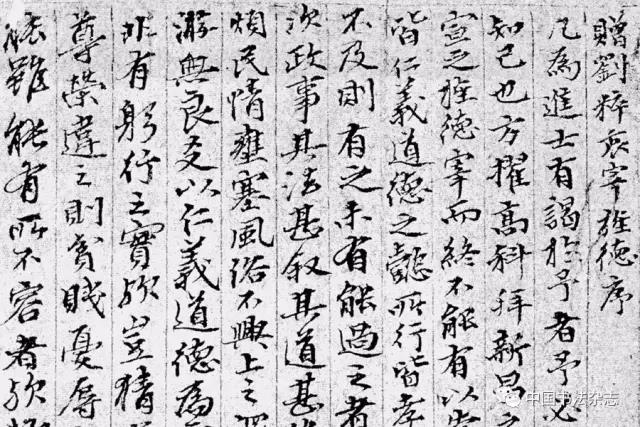 贈劉粹衷宰旌德序
凡為進士有謁於予者予必
知己也方擢高科拜新昌
宣之旌德宰而終不能有以
皆仁義道德之懿所行皆孝
不及則有之未有能過之者
次政事其法甚叙其道甚
煩民情壅塞風俗不興上之
游與良交以仁義道德為
非有躬行之實欤豈猜
尊榮違之則貧賤憂辱
雖能有所不容者欤
中国书法杂志